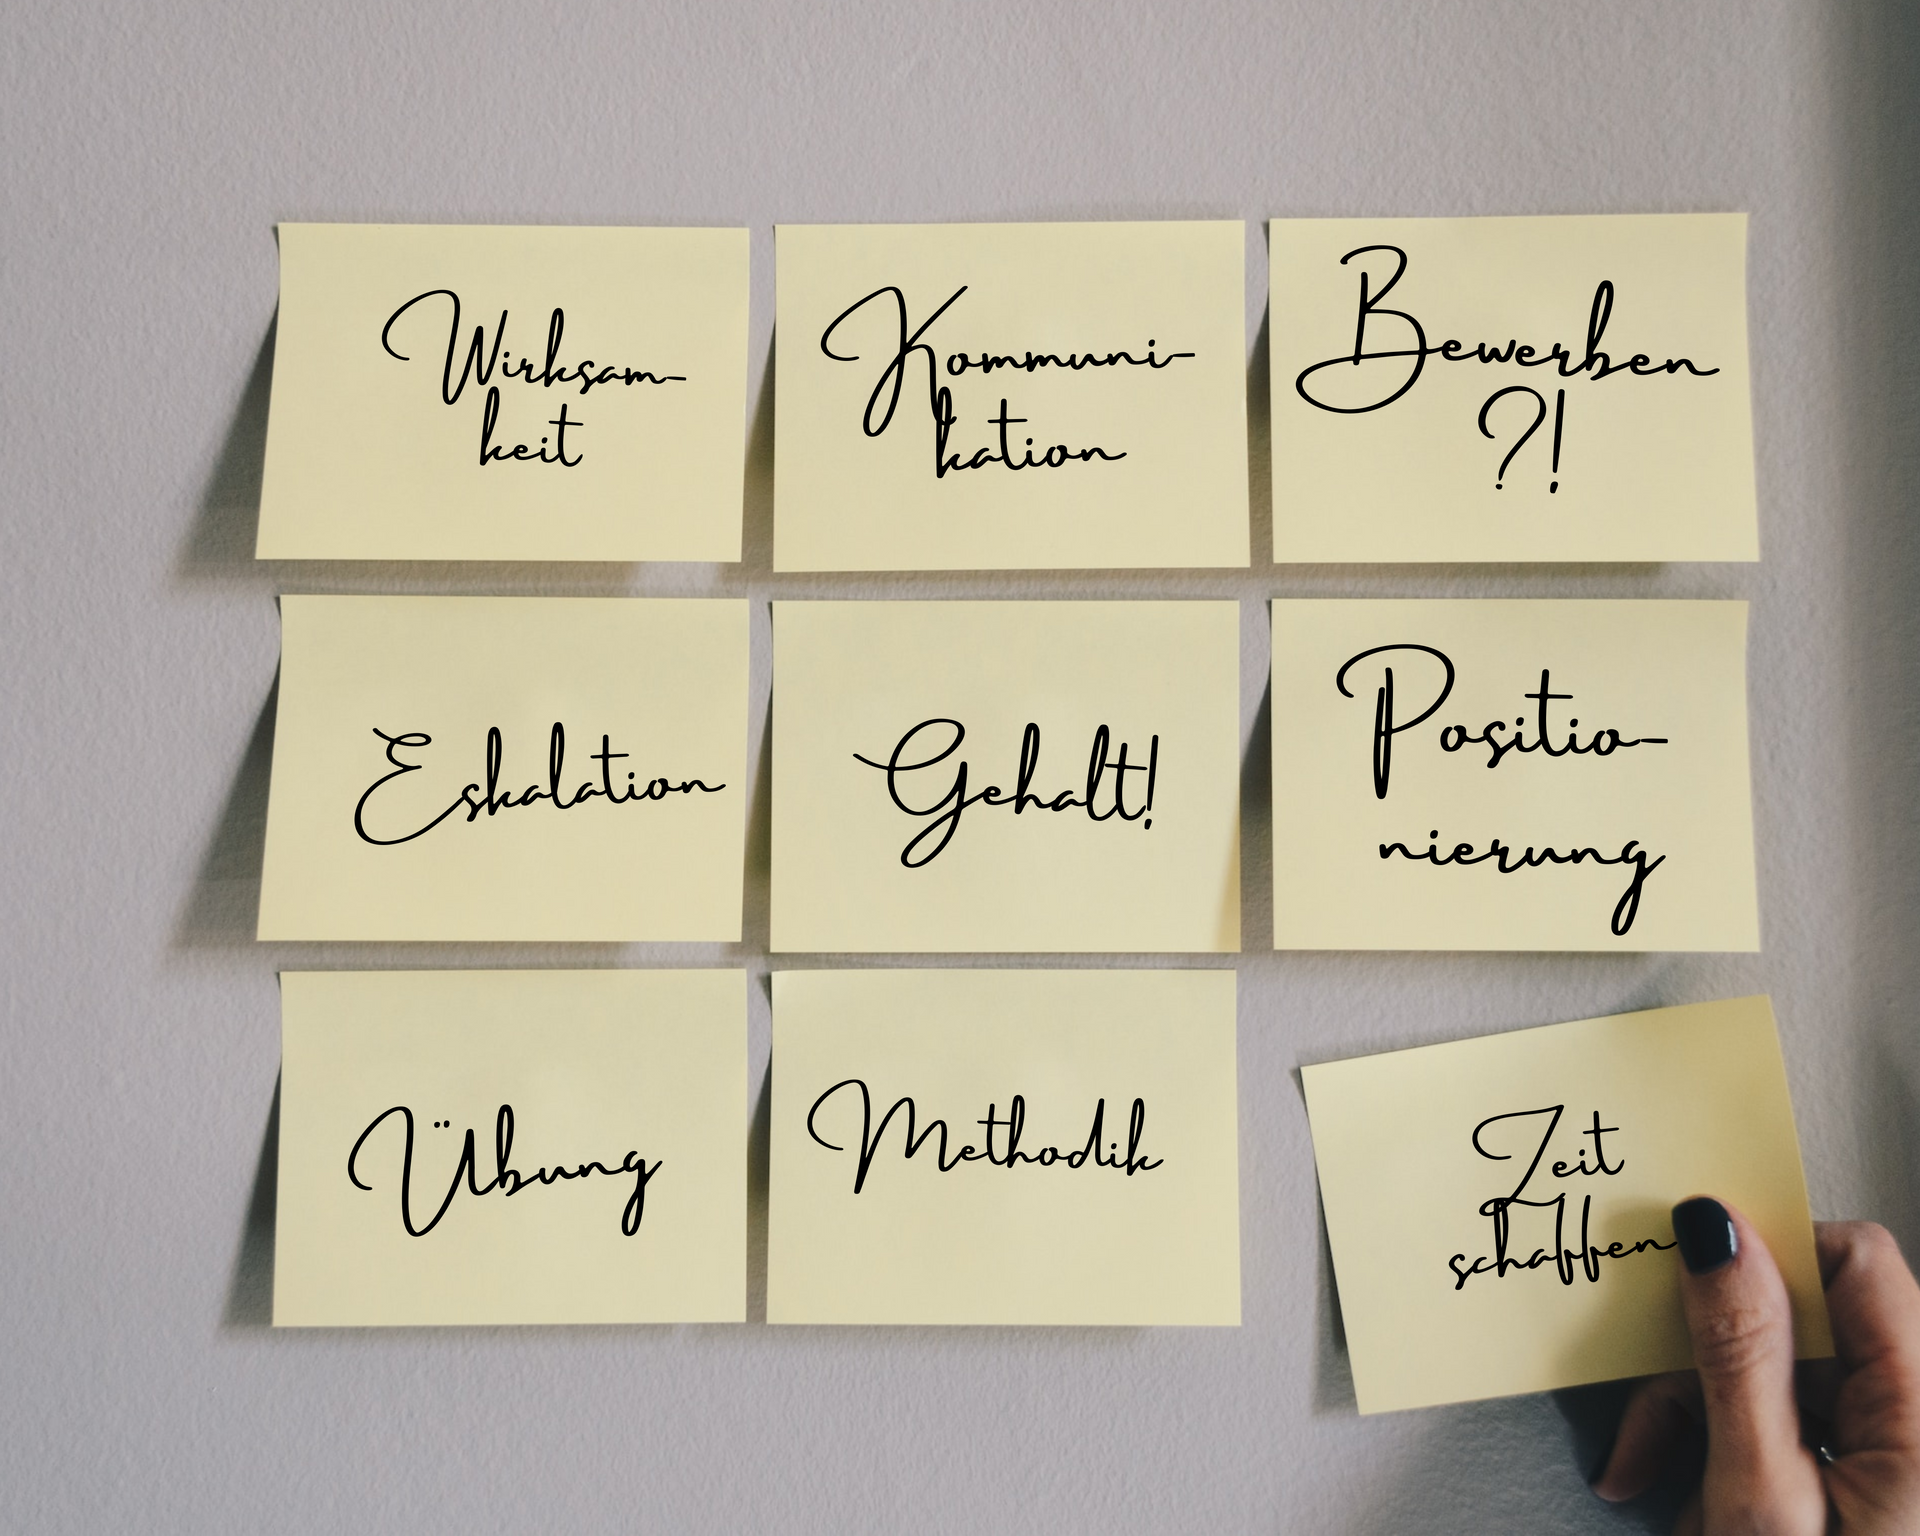 Wirksam-
keit
Kommuni-
kation
Bewerben
?!
Eskalation
Gehalt!
Positio-
nierung
Übung
Methodik
Zeit
schaffen